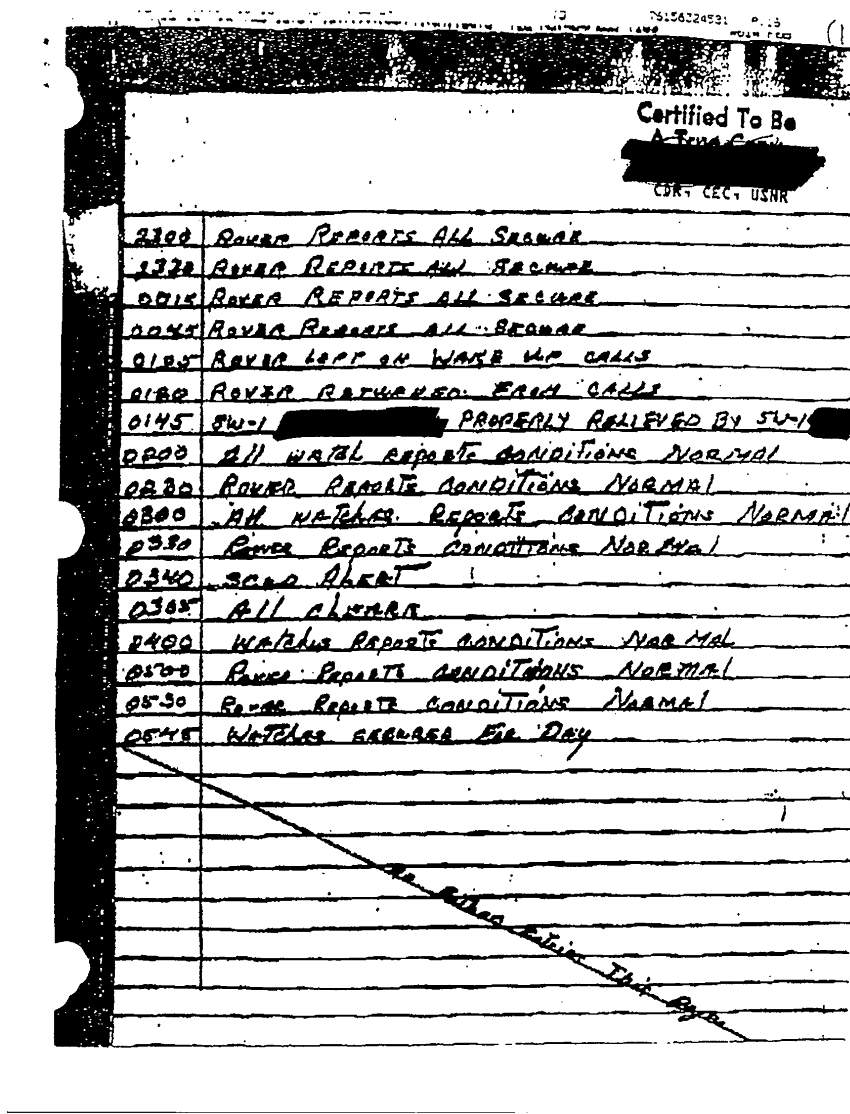 76156324531 P.16
Certified To Be
A True Copy
CDR, CEC, USNR
2300 ROVER REPORTS ALL SECURE
2330 ROVER REPORTS ALL SECURE
0015 ROVER REPORTS ALL SECURE
0045 ROVER REPORTS ALL SECURE
ROVER LEFT ON WAKE UP CALLS
ROVER RETURNED FROM CALLS
0145 SW-1 PROPERLY RELIEVED BY SW-1
0200 All WATCH REPORTS CONDITIONS NORMAL
0230 ROVER REPORTS CONDITIONS NORMAL
0300 All WATCHES REPORTS CONDITIONS NORMAL
0330 ROVER REPORTS CONDITIONS NORMAL
0340 SCUD ALERT
All CLEAR
0400 WATCHES REPORTS CONDITIONS NORMAL
0500 ROVER REPORTS CONDITIONS NORMAL
0530 ROVER REPORTS CONDITIONS NORMAL
0545 WATCHES SECURED FOR DAY
No Further Entries This Page